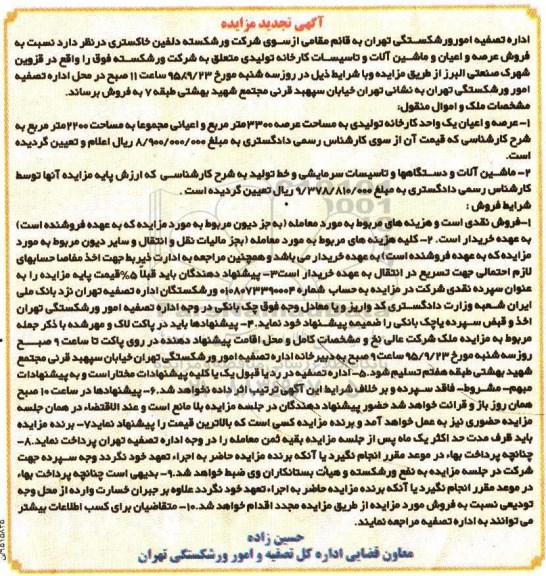 آگهی تجدید مزایده
اداره تصفیه امورورشکستگی تهران به قائم مقامی ازسوی شرکت ورشکسته دلفین خاکستری درنظر دارد نسبت به
فروش عرصه و اعیان و ماشین آلات و تاسیسات کارخانه تولیدی متعلق به شرکت ورشکسته فوق را واقع در قزوین
شهرک صنعتی البرز از طریق مزایده وبا شرایط ذیل در روزسه شنبه مورخ 95/9/23 ساعت 11 صبح در محل اداره تصفیه
امور ورشکستگی تهران به نشانی تهران خیابان سپهبد قرنی مجتمع شهید بهشتی طبقه 7 به فروش برساند.
مشخصات ملک و اموال منقول:
1- عرصه و اعیان یک واحد کارخانه تولیدی به مساحت عرصه 3300متر مربع و اعیانی مجموعا به مساحت 2200متر مربع به
شرح کارشناسی که قیمت آن از سوی کارشناس رسمی دادگستری به مبلغ 8/900/000/000 ریال اعلام و تعیین گردیده
است.
2- ماشین آلات و دستگاهها و تاسیسات سرمایشی و خط تولید به شرح کارشناسی که ارزش پایه مزایده آنها توسط
کارشناس رسمی دادگستری به مبلغ 9/378/810/000 ریال تعیین گردیده است .
شرایط فروش :
1-فروش نقدی است و هزینه های مربوط به مورد معامله (به جز دیون مربوط به مورد مزایده که به عهده فروشنده است)
به عهده خریدار است. 2- کلیه هزینه های مربوط به مورد معامله (بجز مالیات نقل و انتقال و سایر دیون مربوط به مورد
مزایده که به عهده فروشنده است) به عهده خریدار می باشد و همچنین مراجعه به ادارت ذیربط جهت اخذ مفاصا حسابهای
لازم احتمالی جهت تسریع در انتقال به عهده خریدار است3- پیشنهاد دهندگان باید قبلا 5%قیمت پایه مزایده را به
عنوان سپرده نقدی شرکت در مزایده به حساب شماره 0108073390004ورشکستگان اداره تصفیه تهران نزد بانک ملی
ایران شعبه وزارت دادگستری کد واریز و یا معادل وجه فوق چک بانکی در وجه اداره تصفیه امور ورشکستگی تهران
اخذ و قبض سپرده یاچک بانکی را ضمیمه پیشنهاد خود نماید.4- پیشنهادها باید در پاکت لاک و مهرشده با ذکر جمله
مربوط به مزایده ملک شرکت عالی نخ و مشخصات کامل و محل اقامت پیشنهاد دهنده در روی پاکت تا ساعت 9 صبح
روزسه شنبه مورخ 95/9/23 ساعت9 صبح به دبیرخانه اداره تصفیه امور ورشکستگی تهران خیابان سپهبد قرنی مجتمع
شهید بهشتی طبقه هفتم تسلیم شود.5- اداره تصفیه در رد یا قبول یک یا کلیه پیشنهادات مختار است و به پیشنهادات
مبهم- مشروط- فاقد سپرده و بر خلاف شرایط این آگهی ترتیب اثر داده نخواهد شد.6- پیشنهادها در ساعت 10 صبح
همان روز باز و قرائت خواهد شد حضور پیشنهاد دهندگان در جلسه مزایده بلا مانع است و عند الاقتضاء در همان جلسه
مزایده حضوری نیز به عمل خواهد آمد و برنده مزایده کسی است که بالاترین قیمت را پیشنهاد نماید7- برنده مزایده
باید ظرف مدت حد اکثر یک ماه پس از جلسه مزایده بقیه ثمن معامله را در وجه اداره تصفیه تهران پرداخت نماید.8-
چنانچه پرداخت بهاء در موعد مقرر انجام نگیرد یا آنکه برنده مزایده حاضر به اجراء تعهد خود نگردد وجه سپرده جهت
شرکت در جلسه مزایده به نفع ورشکسته و هیأت بستانکاران وی ضبط خواهد شد.9- بدیهی است چنانچه پرداخت بهاء
در موعد مقرر انجام نگیرد یا آنکه برنده مزایده حاضر به اجراء تعهد خود نگردد علاوه بر جبران خسارت وارده از محل وجه
تودیعی نسبت به فروش مورد مزایده از طریق مزایده مجدد اقدام خواهد شد.10- متقاضیان برای کسب اطلاعات بیشتر
می توانند به اداره تصفیه مراجعه نمایند.
حسین زاده
معاون قضایی اداره کل تصفیه و امور ورشکستگی تهران